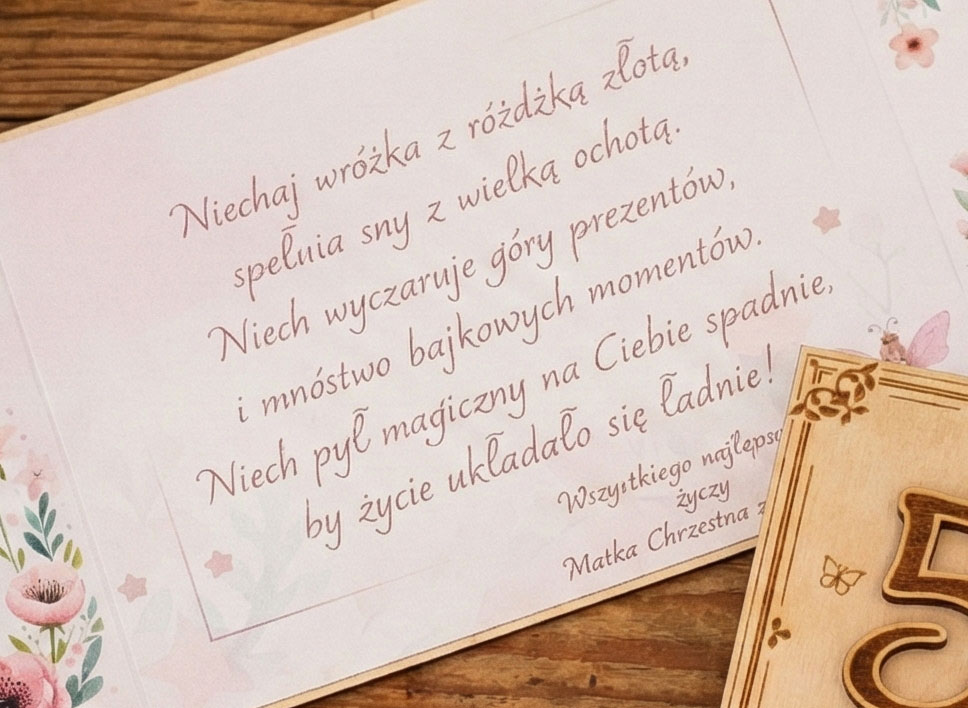 Niechaj wróżka z różdżką złotą,
spełnia sny z wielką ochotą.
Niech wyczaruje góry prezentów,
i mnóstwo bajkowych momentów.
Niech pył magiczny na Ciebie spadnie,
by życie układało się ładnie!
Wszystkiego
życzy
Matka Chrzestna z
5